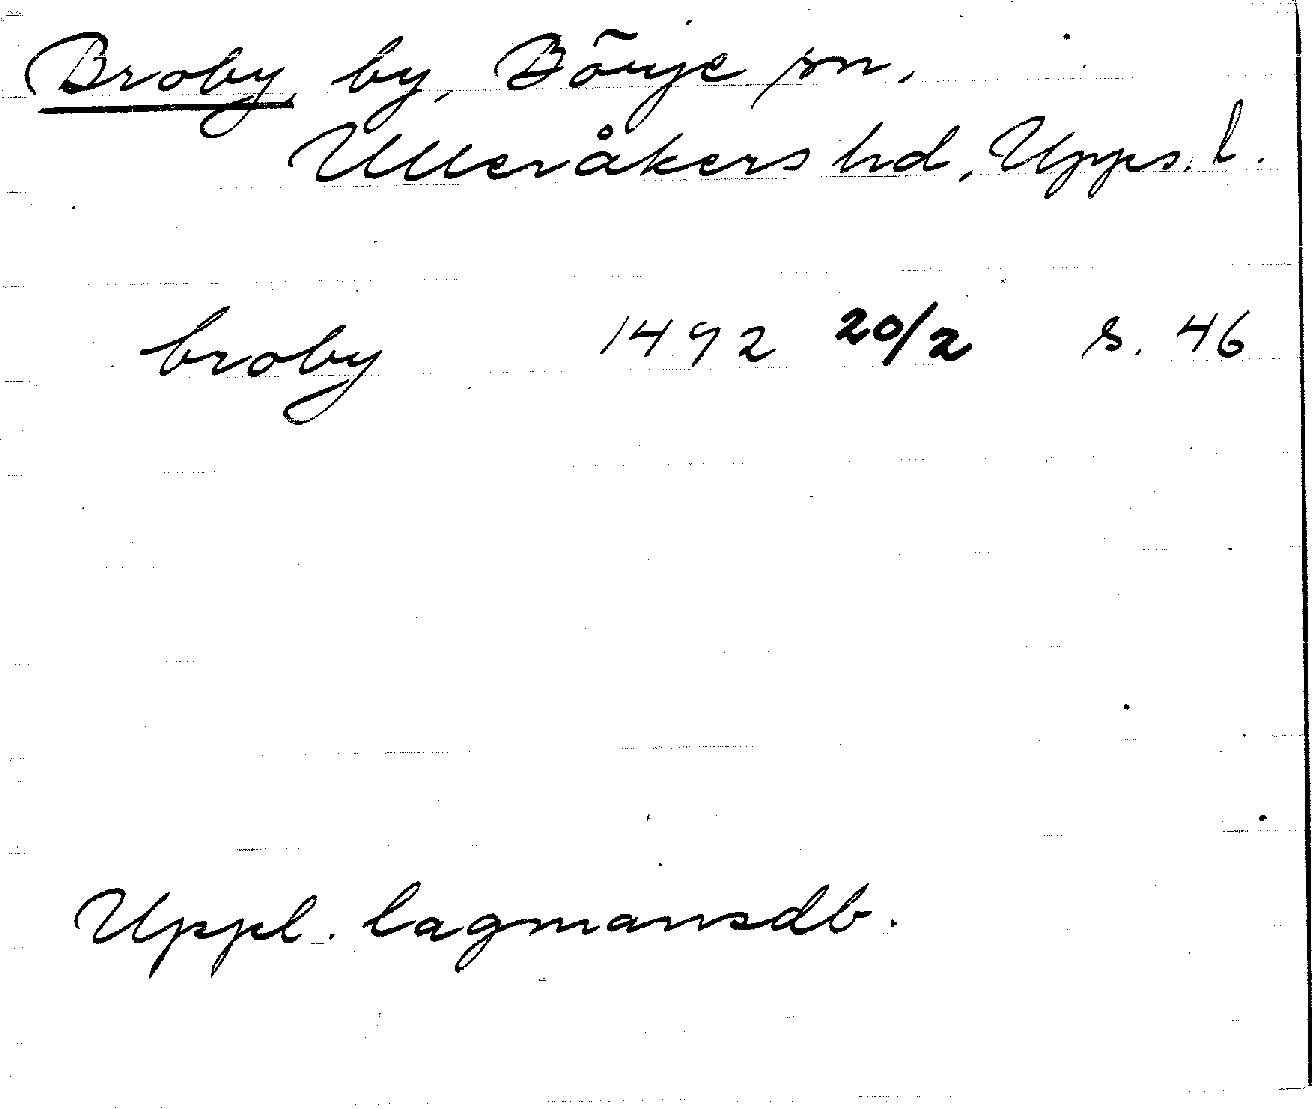 Broby, by, Börje sn.
Ulleråkers hd, Upps. l.
broby 1492 20/2 s. 46
Uppl. lagmansdb.